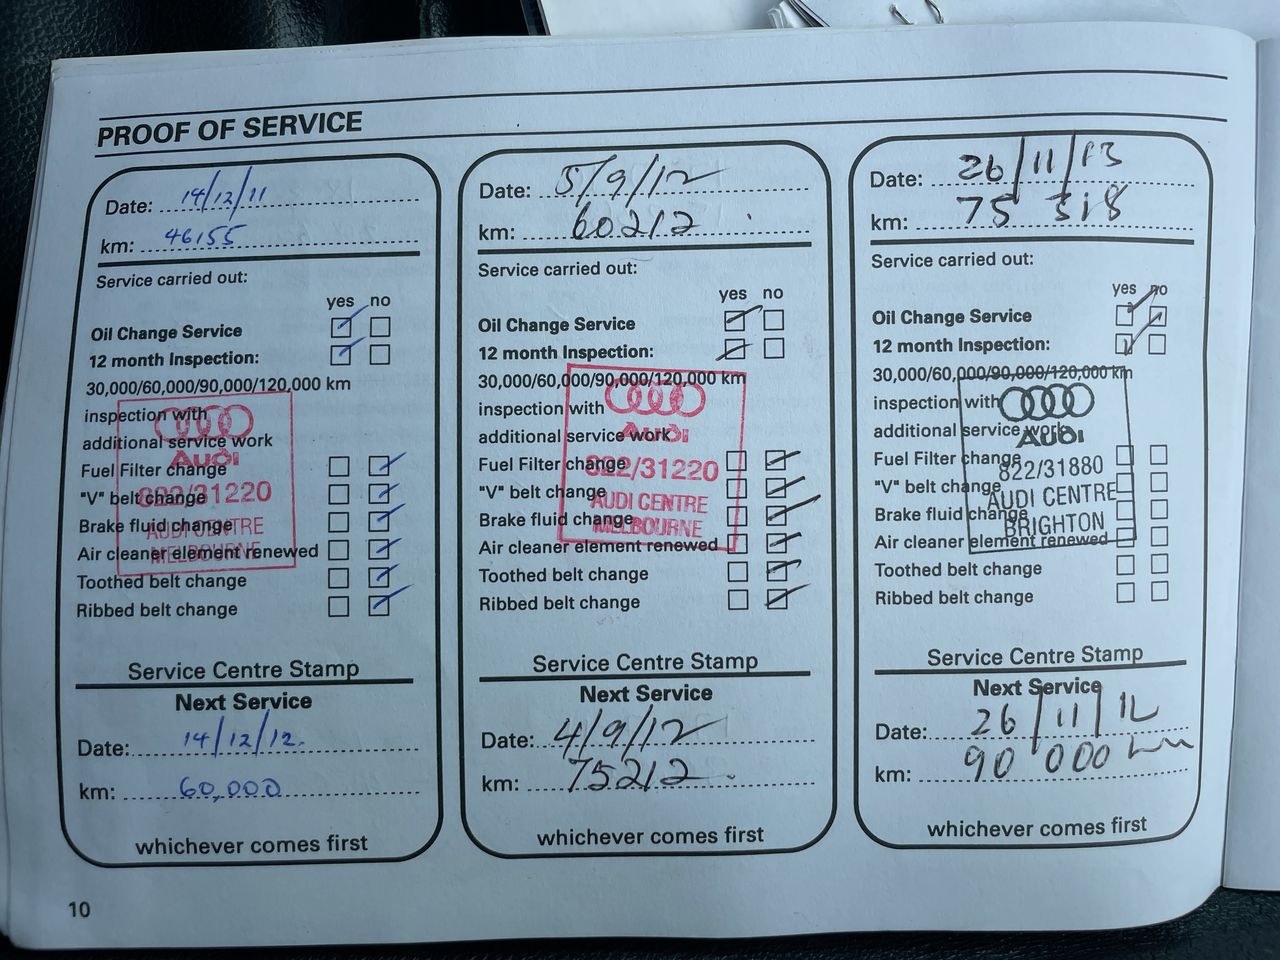 PROOF OF SERVICE
Date: 14/12/11
km: 46155
Service carried out:
yes no
Oil Change Service
12 month Inspection:
30,000/60,000/90,000/120,000 km
inspection with
additional service work
Fuel Filter change
"V" belt change
Brake fluid change
Air cleaner element renewed
Toothed belt change
Ribbed belt change
Audi
822/31220
AUDI CENTRE
MELBOURNE
Service Centre Stamp
Next Service
Date: 14/12/12.
km: 60,000
whichever comes first
Date: 5/9/12
km: 60212
Service carried out:
yes no
Oil Change Service
12 month Inspection:
30,000/60,000/90,000/120,000 km
inspection with
additional service work
Fuel Filter change
"V" belt change
Brake fluid change
Air cleaner element renewed
Toothed belt change
Ribbed belt change
Audi
822/31220
AUDI CENTRE
MELBOURNE
Service Centre Stamp
Next Service
Date: 4/9/12
km: 75212
whichever comes first
Date: 26/11/13
km: 75 518
Service carried out:
yes no
Oil Change Service
12 month Inspection:
30,000/60,000/90,000/120,000 km
inspection with
additional service work
Fuel Filter change
"V" belt change
Brake fluid change
Air cleaner element renewed
Toothed belt change
Ribbed belt change
Audi
822/31880
AUDI CENTRE
BRIGHTON
Service Centre Stamp
Next Service
Date: 26/11/12
km: 90 000 km
whichever comes first
10